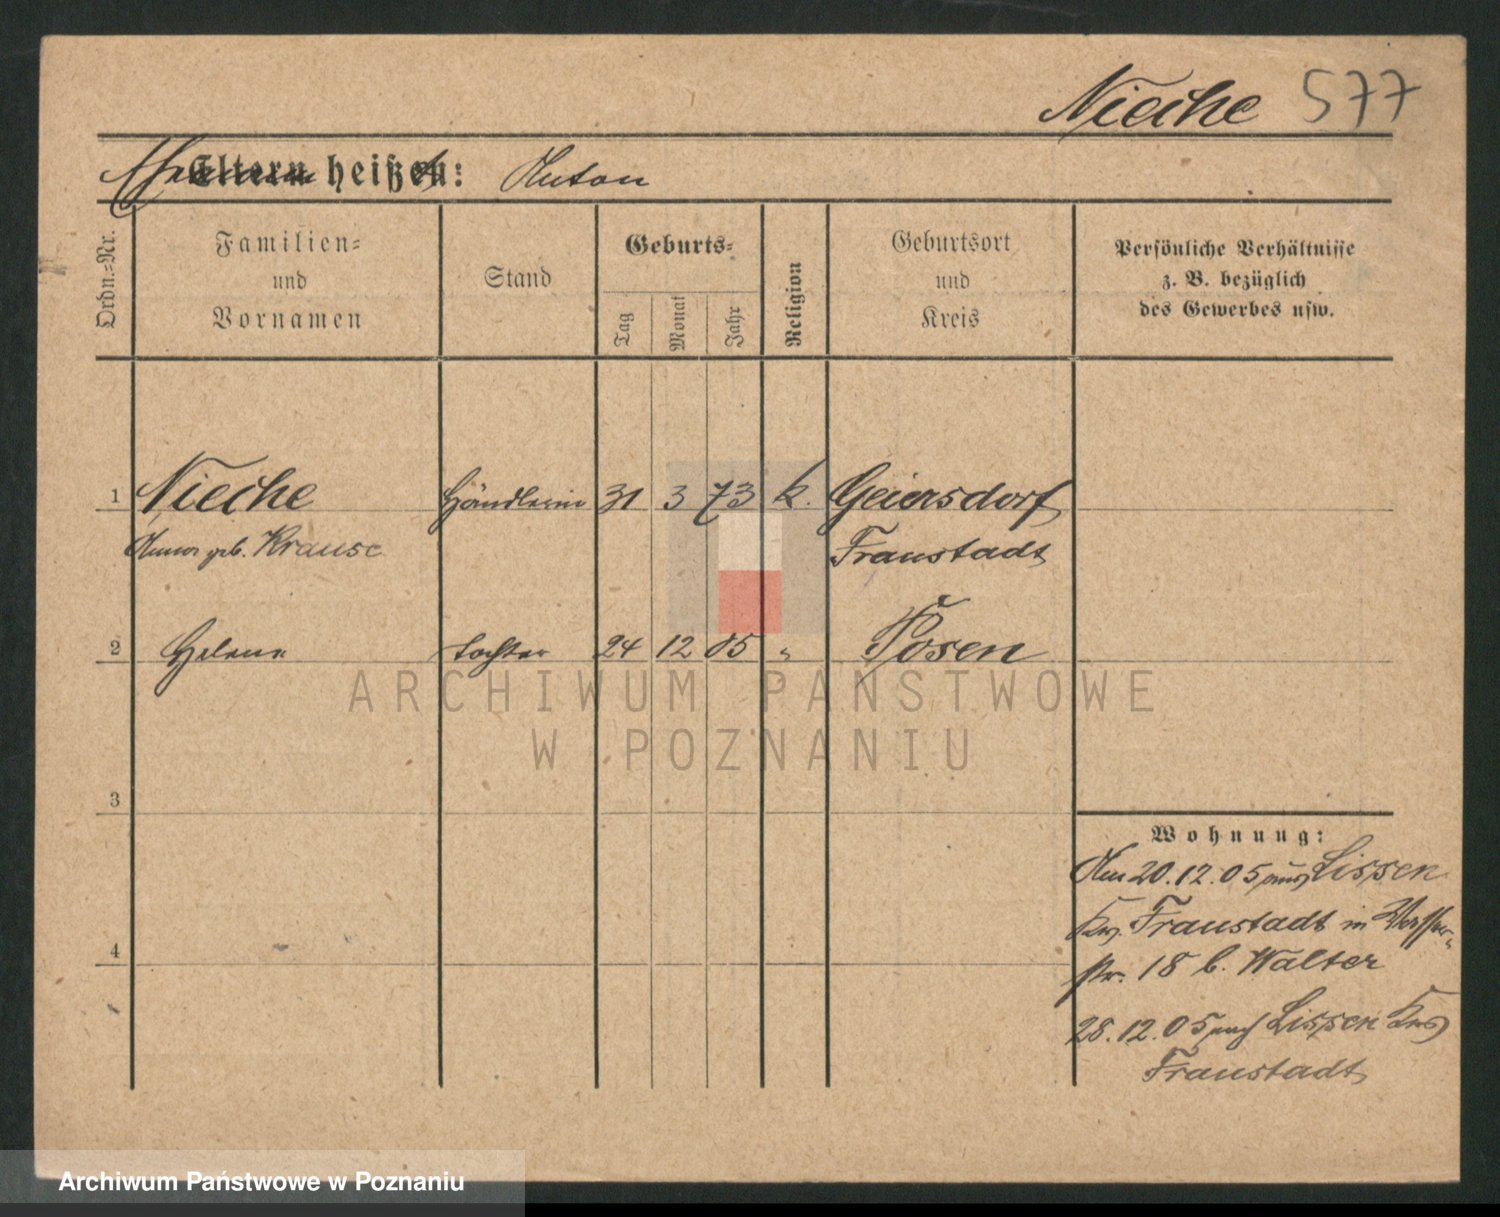 Nieche 577
Ehemann Eltern heißt: Anton
Ordn.-Nr.
Familien-
und
Vornamen
Stand
Geburts-
Tag
Monat
Jahr
Religion
Geburtsort
und
Kreis
Persönliche Verhältnisse
z. B. bezüglich
des Gewerbes usw.
1 Nieche Händlerin 31 3 73 k. Geiersdorf
Anna geb. Krause Fraustadt
2 Helene Tochter 24 12 05 " Posen
ARCHIWUM PAŃSTWOWE
W POZNANIU
3
Wohnung:
Am 20.12.05 aus Lissen
Krs. Fraustadt in Wasser-
str. 18 b. Walter
4
28.12.05 nach Lissen Krs
Fraustadt
Archiwum Państwowe w Poznaniu